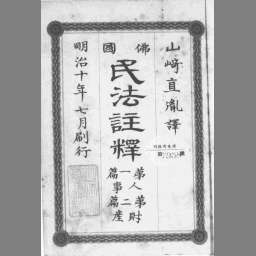 山崎直胤譯
佛國
民法註釋
第一篇人事
第二篇財産
明治十年七月刷行